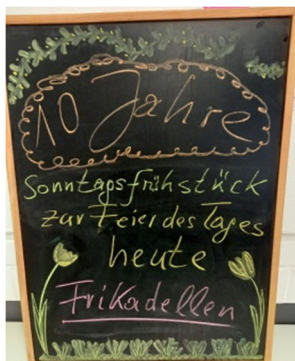 10 Jahre
Sonntagsfrühstück
zur Feier des Tages
heute
Frikadellen